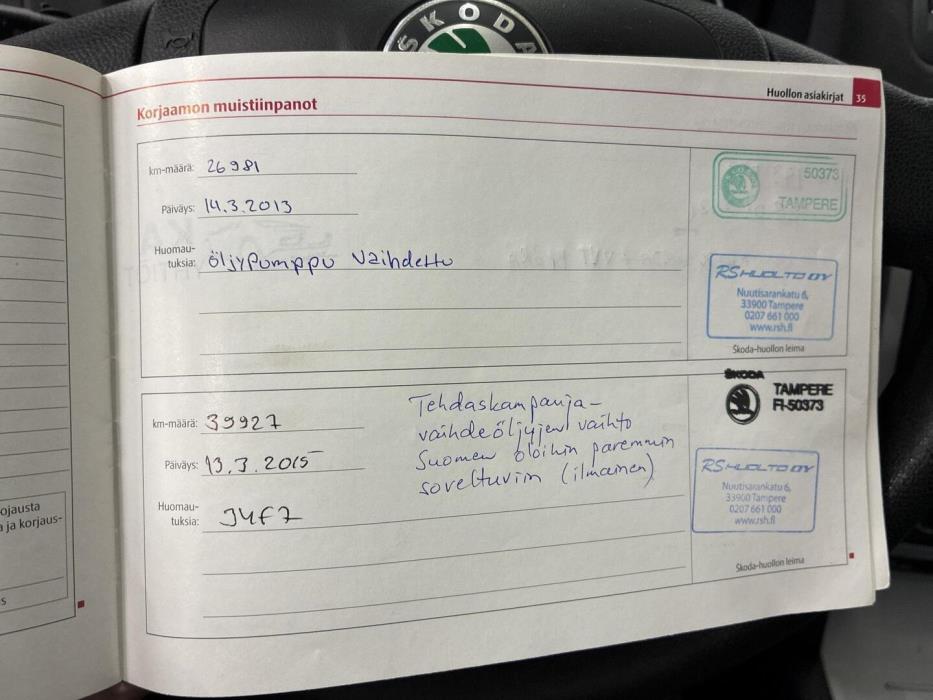 SKODA
Huollon asiakirjat 35
Korjaamon muistiinpanot
km-määrä: 26981
Päiväys: 14.3.2013
Huomau-
tuksia: öljypumppu vaihdettu
50373
TAMPERE
RS HUOLTO OY
Nuutisarankatu 6,
33900 Tampere
0207 661 000
www.rsh.fi
Škoda-huollon leima
km-määrä: 39927
Päiväys: 13.3.2015
Huomau-
tuksia: 34F7
Tehdaskampanja-
vaihdeöljyjen vaihto
Suomen oloihin paremmin
soveltuviin (ilmainen)
ŠKODA
TAMPERE
FI-50373
RS HUOLTO OY
Nuutisarankatu 6,
33900 Tampere
0207 661 000
www.rsh.fi
Škoda-huollon leima
ojausta
a ja korjaus-
s